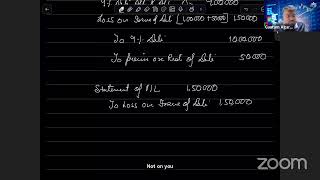 Loss on Issue of Deb [1,00,000 + 50000] 1,50,000
To 9% Deb 10,00,000
To premium on Red of Deb 50,000
Statement of P/L 1,50,000
To Loss on Issue of Deb 1,50,000
Not on you
zoom